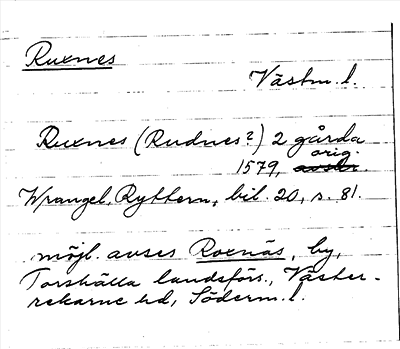 Ruxnes
Västm. l.
Ruxnes (Rudnes?) 2 gårda
orig.
1579,
Wrangel, Ryttern, bil. 20, s. 81.
möjl. avses Roxnäs, by,
Torshälla landsförs., Väster-
rekarne hd, Söderm. l.